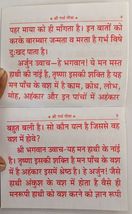 श्री गर्भ गीता
पहर माया को ही मांगता है। इन बातों को
करके बारम्बार जन्मता व मरता है गर्भ विषे
दुःख पाता है।
अर्जुन उवाच-हे भगवान! ये मन मस्त
हाथी की नाई है, तृष्णा इसकी शक्ति है यह
मन पांच के वश में है काम, क्रोध, लोभ,
मोह, अहंकार और इन पांचों में अहंकार
श्री गर्भ गीता
बहुत बली है। सो कौन यत्न है जिससे मन
वश में होवे?
श्री भगवान उवाच-यह मन हाथी की नाई
है। तृष्णा इसकी शक्ति है मन पाँच के वश
में है अहंकार इसमें श्रेष्ठ है। हे अर्जुन! जैसे
हाथी अंकुश के वश में होता है वैसे ही
मनरूपी हाथी को वश करने को ज्ञान रूपी